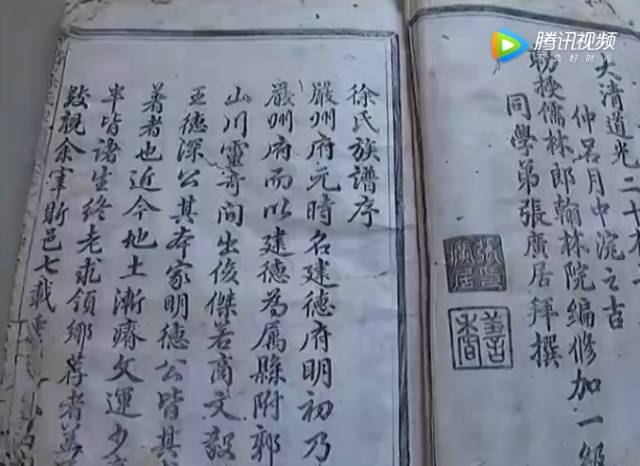 腾讯视频
不负好时光
大清道光二十
仲呂月中浣之吉
勅授儒林郎翰林院編修加一級
同學弟張廣居拜撰
徐氏族譜序
嚴州府元時名建德府明初乃
嚴州府而以建德為屬縣附郭
山川靈奇間出俊傑若商文毅
王德深公其本家明德公皆其
著者也近今地土漸瘠文運少
半皆諸生終老求領鄉薦者
余宰斯邑七載